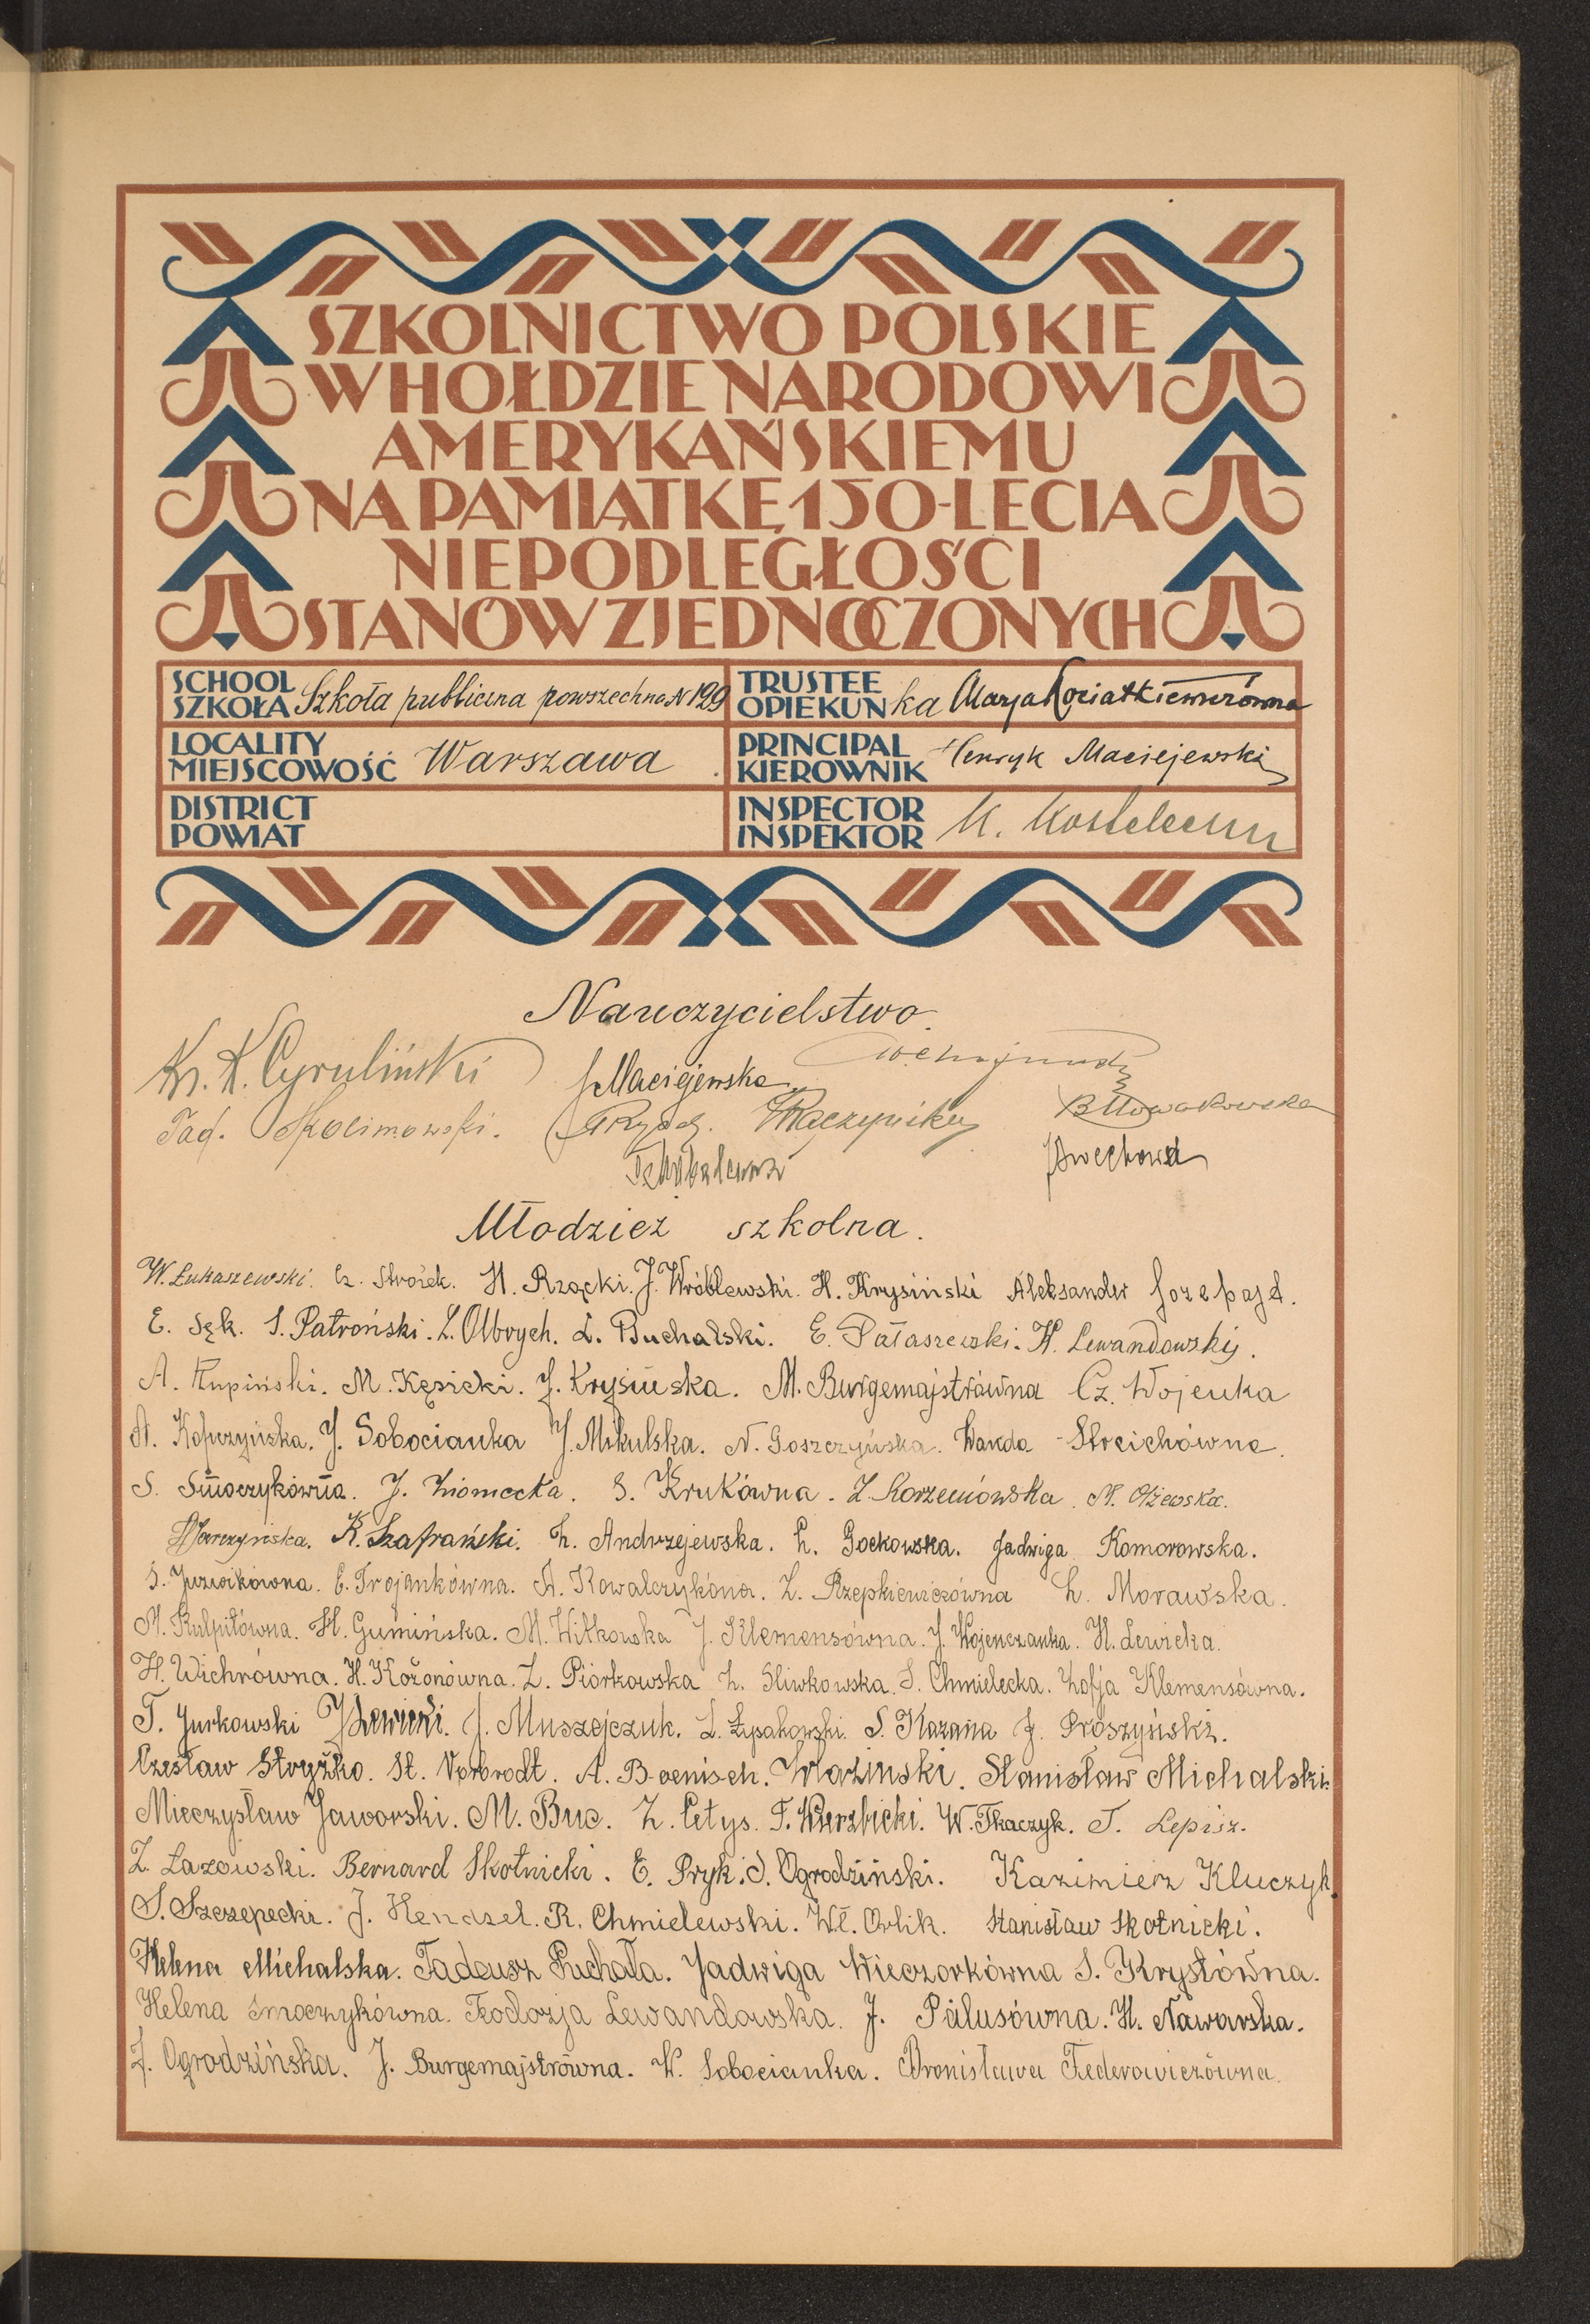 SZKOLNICTWO POLSKIE
W HOŁDZIE NARODOWI
AMERYKAŃSKIEMU
NA PAMIĄTKĘ 150-LECIA
NIEPODLEGŁOŚCI
STANÓW ZJEDNOCZONYCH
SCHOOL
SZKOŁA Szkoła publiczna powszechna N 129
TRUSTEE
OPIEKUNka Marja
LOCALITY
MIEJSCOWOŚĆ Warszawa
PRINCIPAL
KIEROWNIK Henryk Maciejewski
DISTRICT
POWIAT
INSPECTOR
INSPEKTOR K.
Nauczycielstwo.
Ks. K. Cyruliński
J Maciejewska
Tad. Skolimowski.
B Nowakowska
Młodzież szkolna.
W. Łukaszewski. Cz. Strożek. H. Rzącki. J. Wróblewski. H. Krysiński Aleksander
E. Sęk. S. Patroński. Z. Olbrych. L. Buchalski. E. Pałaszewski. H. Lewandowski.
A. Krupiński. M. Kęsicki. J. Krysińska. M. Burgemajstrówna Cz. Wojenka
A. Kopczyńska. J. Sobocianka J. Mikulska. N. Goszczyńska. Wanda Streichówna.
S. Smoczykówna. J. Ziomecka. S. Krukówna. Z. Korzeniowska. M. Olżewska.
K. Szafrański. Z. Andrzejewska. L. Gockowska. Jadwiga Komorowska.
S. Juzwikówna. E. Trojankówna. A. Kowalczykóna. Z. Rzepkiewiczówna L. Morawska.
M. Kulpitówna. H. Gumińska. M. Witkowska J. Klemensówna. J. Wojenczanka. H. Lewicka.
H. Wichrówna. H. Kożonówna. Z. Piórkowska Z. Śliwkowska. S. Chmielecka. Zofja Klemensówna.
T. Jurkowski J Lewicki. J. Muszejczuk. L. Łysakowski. S. Kazana J. Prószyński.
Czesław Stryżko. St. Vorbrodt. A. Boenisch. Stanisław Michalski.
Mieczysław Jaworski. M. Buc. Z. Cetys. F. Wierzbicki. W. Tkaczyk. T. Lepisz.
Z. Lazowski. Bernard Skotnicki. E. Pryk. S. Ogrodziński. Kazimierz Kluczyk.
S. Szczepecki. J. Hendzel. R. Chmielewski. Wł. Orlik. Stanisław Skotnicki.
Helena Michalska. Tadeusz Puchała. Jadwiga Wieczorkówna S. Krystówna.
Helena Smoczykówna. Teodozja Lewandowska. J. Palusówna. H. Nawarska.
Z. Ogrodzińska. J. Burgemajstrówna. W. Sobocianka. Bronisława Federowiczówna.